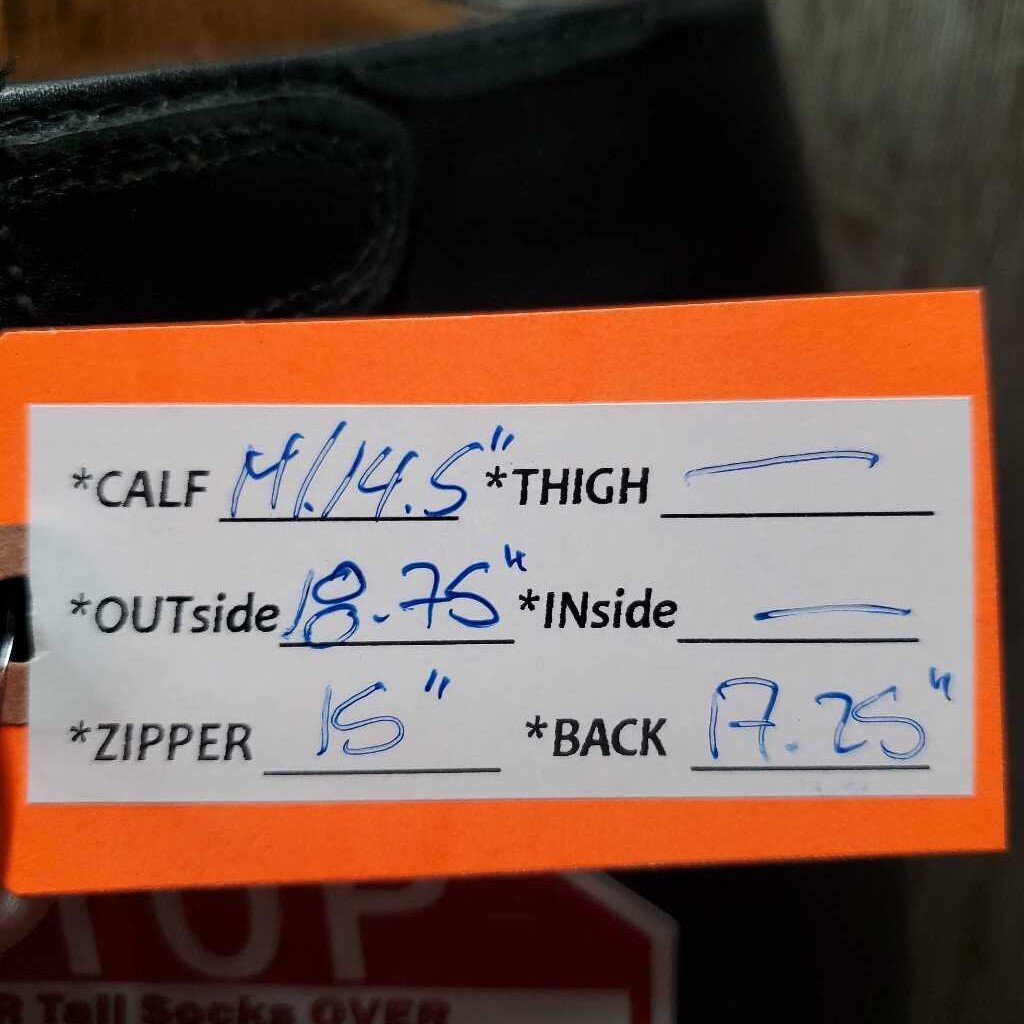 *CALF M/.14.5" *THIGH —
*OUTside 18.75" *INside —
*ZIPPER 15" *BACK 17.25"
TOP
R Tall Socks OVER